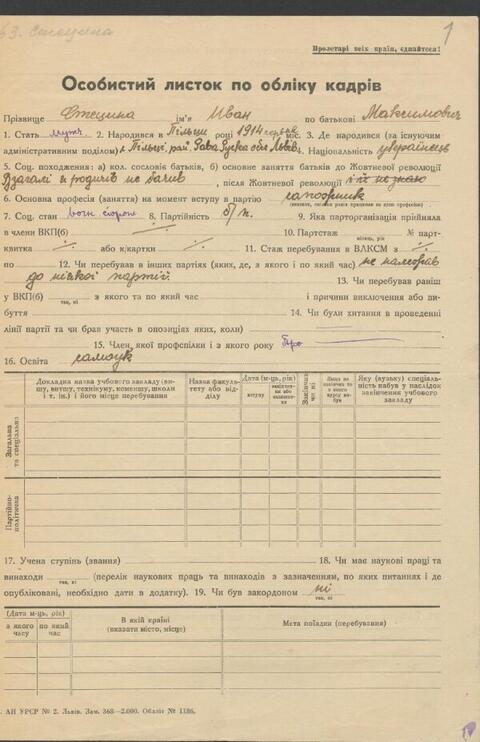 1
Пролетарі всіх країн, єднайтеся!
Особистий листок по обліку кадрів
Прізвище Стецина ім'я Иван по батькові Максимович
1. Стать муж. 2. Народився в Пільци році 1914 міс. 3. Де народився (за існуючим
адміністративним поділом) Пільці, рай. Рава Руська обл Львів 4. Національність українець
5. Соц. походження: а) кол. сословість батьків, б) основне заняття батьків до Жовтневої революції
Взагалі родичів не бачив, після Жовтневої революції і їх не знаю
6. Основна професія (заняття) на момент вступу в партію
7. Соц. стан 8. Партійність б/п. 9. Яка парторганізація прийняла
в члени ВКП(б) 10. Партстаж місяць, рік № парт-
квитка або к/картки 11. Стаж перебування в ВЛКСМ з
по 12. Чи перебував в інших партіях (яких, де, з якого і по який час) не належав
до ніякої партії. 13. Чи перебував раніш
у ВКП(б) так, ні з якого та по який час і причини виключення або ви-
буття 14. Чи були хитання в проведенні
лінії партії та чи брав участь в опозиціях яких, коли)
15. Член якої профспілки і з якого року
16. Освіта самоук
Докладна назва учбового закладу (ви-
шу, втишу, технікуму, комвишу, школи
і т. ін.) і його місце перебування
Назва факуль-
тету або від-
ділу
Дата (м-ць, рік)
вступу
Закінчив чи ні
Якщо не закінчив то з якого курсу вибув
Яку (вузьку) спеціаль-
ність набув у наслідок
закінчення учбового
закладу
Загальна та спеціальна
Партійно-політична
17. Учена ступінь (звання) 18. Чи має наукові праці та
винаходи так, ні (перелік наукових праць та винаходів з зазначенням, по яких питаннях і де
опубліковані, необхідно дати в додатку). 19. Чи був закордоном ні
так, ні
(Дата м-ць, рік)
з якого часу
по який час
В якій країні
(вказати місто, місце)
Мета поїздки (перебування)
АП УРСР № 2. Львів. Зам. 368—2.000. Обліт № 1186.